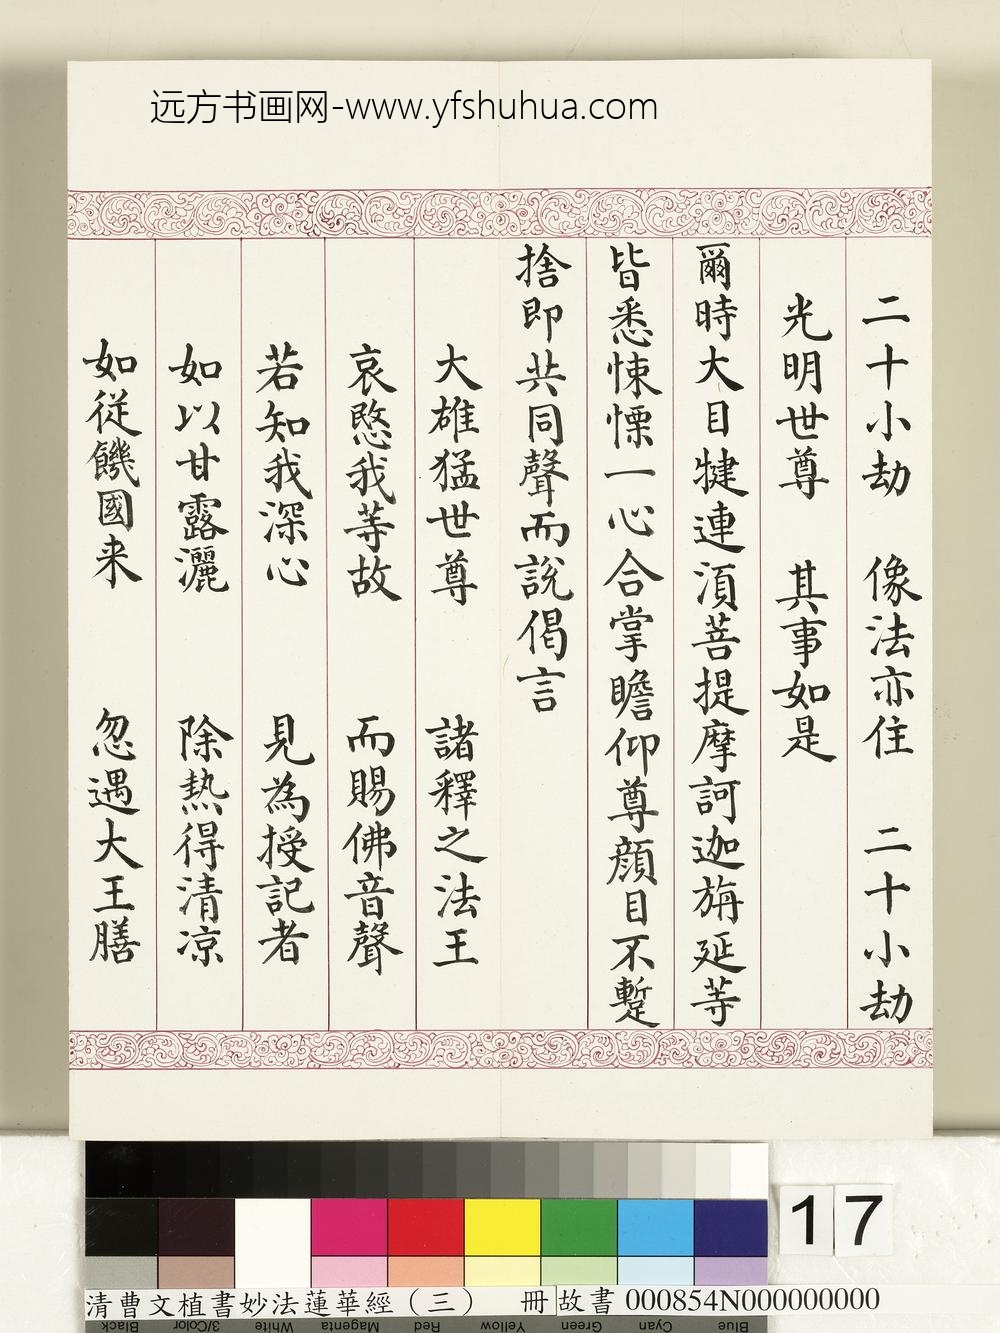 远方书画网-www.yfshuhua.com
二十小劫　像法亦住　二十小劫
光明世尊　其事如是
爾時大目犍連湏菩提摩訶迦旃延等
皆悉悚慄一心合掌瞻仰尊顏目不蹔
捨即共同聲而說偈言
大雄猛世尊　諸釋之法王
哀愍我等故　而賜佛音聲
若知我深心　見為授記者
如以甘露灑　除熱得清凉
如從饑國来　忽遇大王膳
17
清曹文植書妙法蓮華經（三）　冊　故書 000854N000000000
Black 3/Color White Magenta Red Yellow Green Cyan Blue